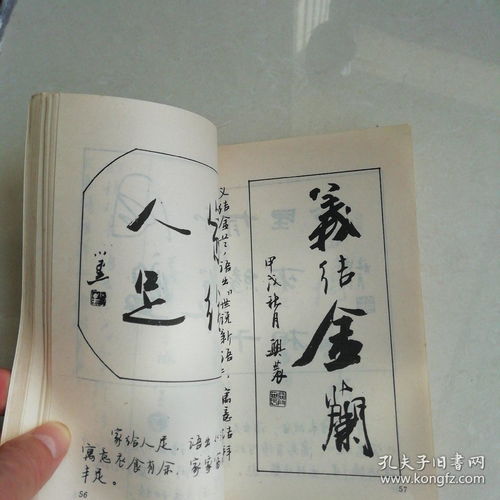 人
足
家给人足，语出《
寓意衣食有余，家家
丰足。
56
义结金兰，语出《世说新语》，寓意结拜
義结金蘭
甲戌秋月
57
孔夫子旧书网
www.kongfz.com